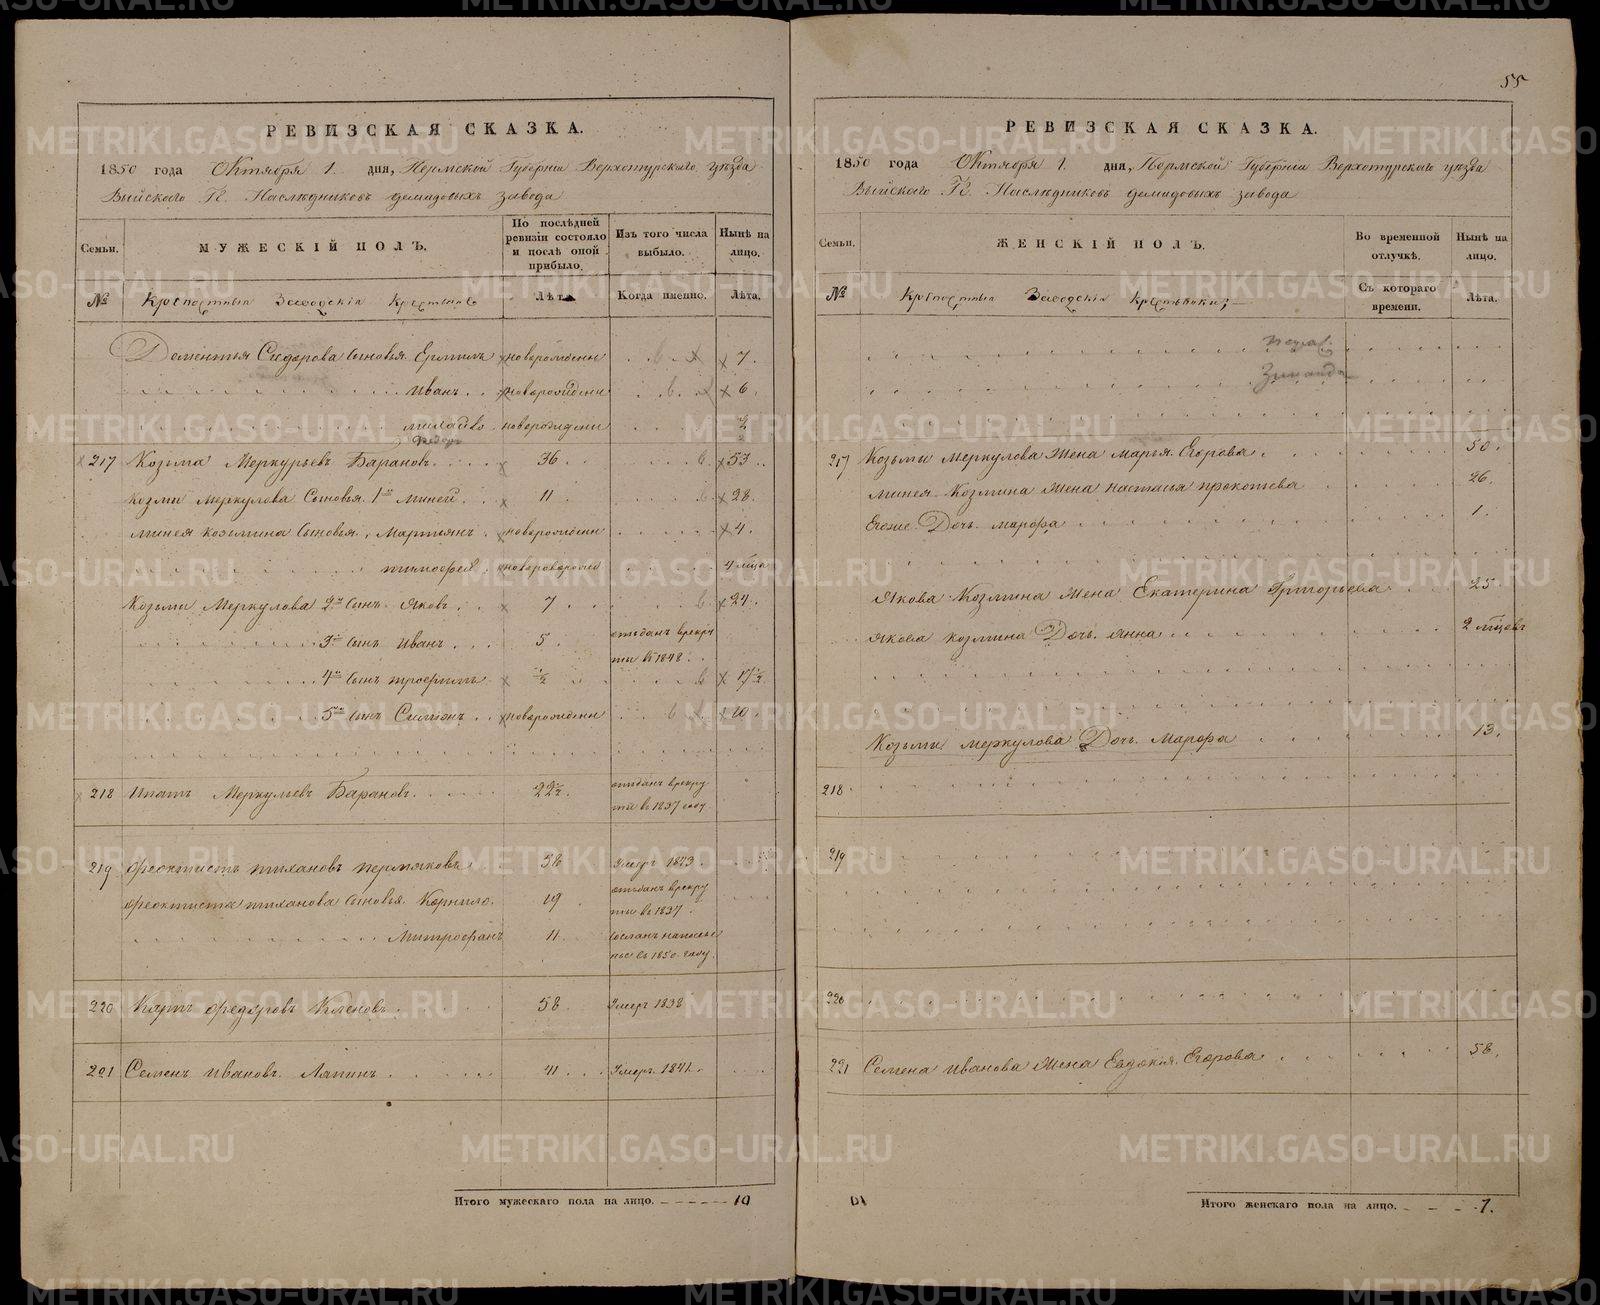 55
РЕВИЗСКАЯ СКАЗКА.
1850 года Октября 1 дня, Пермской Губернiи Верхотурскаго уѣзда
Выйскаго Гг. Наслѣдниковъ демидовыхъ завода
Семьи. МУЖЕСКIЙ ПОЛЪ. По послѣдней ревизiи состояло и послѣ оной прибыло. Изъ того числа выбыло. Нынѣ на лицо.
№ Крѣпостныя Заводскiя Крестьяне Лѣта. Когда именно. Лѣта.
Дементья Сидорова сыновья Ермилъ новорожденн 7.
Иванъ новорожденн 6.
новорожденн 2
217 Козьма Меркурьевъ Барановъ 36 53
Козмы Меркулова Сыновья 1й Миней 11 28.
Минея Козьмина Сыновья Мартиянъ новорожденн 4.
тимофей
Козьмы Меркулова 2й Сынъ Яковъ 7 24.
3й сынъ Иванъ 5 отъданъ врекру
ты въ 1848
4й сынъ трофимъ ½ 17½
5й сынъ Симонъ новорожденн 10.
218 Ипатъ Меркульевъ Барановъ 22½. отъданъ врекру
ты въ 1837 году
219 Феоктистъ тихановъ пермяковъ 58 Умеръ 1843.
Феоктиста тиханова Сыновья Корнило 19 отъданъ врекру
ты въ 1837.
Митрофанъ 11 сосланъ напосель
нье въ 1850 году.
220 Карпъ Федоровъ Кленовъ 58. Умеръ 1838
221 Семенъ Ивановъ Ляпинъ 41 Умеръ 1841.
Итого мужескаго пола на лицо. 10
РЕВИЗСКАЯ СКАЗКА.
1850 года Октября 1. дня, Пермской Губернiи Верхотурскаго уѣзда
Выйскаго Гг. Наслѣдниковъ демидовыхъ завода
Семьи. ЖЕНСКIЙ ПОЛЪ. Во временной отлучкѣ. Нынѣ на лицо.
№ Крѣпостныя Заводскiя Крестьянки Съ котораго времени. Лѣта.
217 Козьмы Меркулова жена Марья Егорова 50.
Минея Козмина жена настасья прокопьева 26.
Егоже Дочь Марфа 1.
Якова Козмина жена Екатерина Григорьева 25
Якова козмина Дочь анна 2 мѣсцовъ
Козьмы Меркулова Дочь Марфа 13.
218
219
220
221 Семена Иванова жена Евдокiя Егорова 58.
Итого женскаго пола на лицо. 7.
METRIKI.GASO-URAL.RU